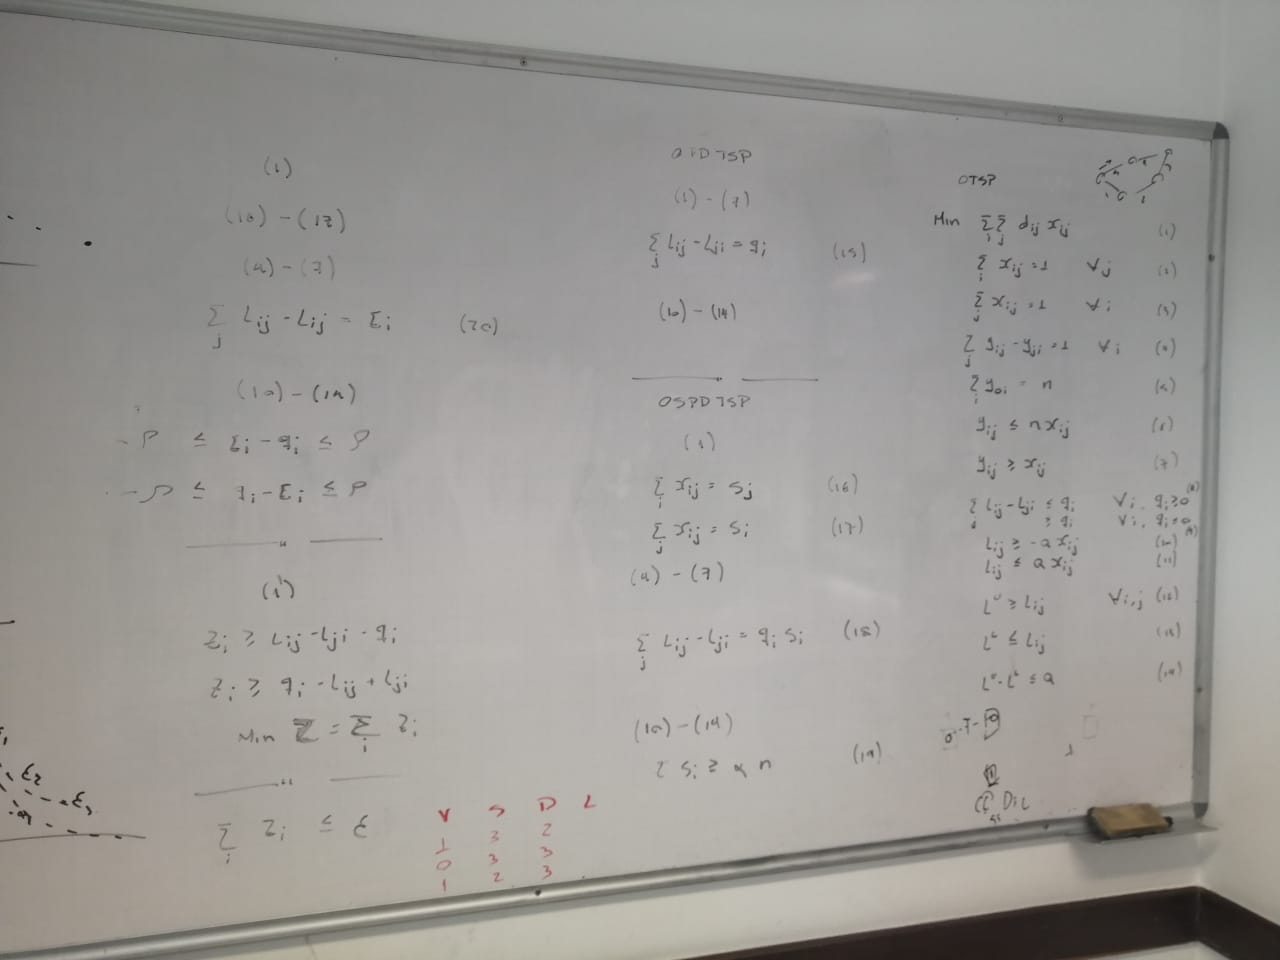 (1)
(10) - (12)
(4) - (7)
∑_j L_ij - L_ij = Σ_i (20)
(10) - (14)
-ρ ≤ Σ_i - q_i ≤ ρ
-ρ ≤ q_i - Σ_i ≤ ρ
(1)
z_i ≥ L_ij - L_ji - q_i
z_i ≥ q_i - L_ij + L_ji
Min Z = ∑_i z_i
∑_i z_i ≤ ε
V S D L
1 3 2
0 3 3
1 2 3
(1) - (7)
∑_j L_ij - L_ji = q_i (15)
(10) - (14)
OSPDTSP
(1)
∑_i x_ij = s_j (16)
∑_j x_ij = s_i (17)
(4) - (7)
∑_j L_ij - L_ji = q_i s_i (18)
(10) - (14)
∑ s_i ≥ α n (19)
OTSP
Min ∑_i ∑_j d_ij x_ij (1)
∑_i x_ij = 1 ∀j (2)
∑_j x_ij = 1 ∀i (3)
∑_j y_ij - y_ji = 1 ∀i (4)
∑_i y_0i = n (5)
y_ij ≤ n x_ij (6)
y_ij ≥ x_ij (7)
∑_j L_ij - L_ji ≤ q_i ∀i, q_i ≥ 0 (8)
≥ q_i ∀i, (9)
L_ij ≥ -Q x_ij (10)
L_ij ≤ Q x_ij (11)
L^u ≥ L_ij ∀i,j (12)
L^L ≤ L_ij (13)
L^u - L^L ≤ Q (14)